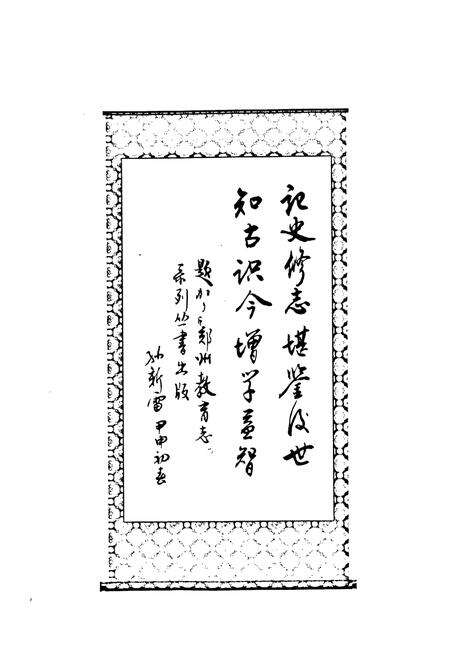 记史修志堪鉴后世
知古识今增学益智
题于《郑州教育志》
系列丛书出版
孙新雷 甲申初春